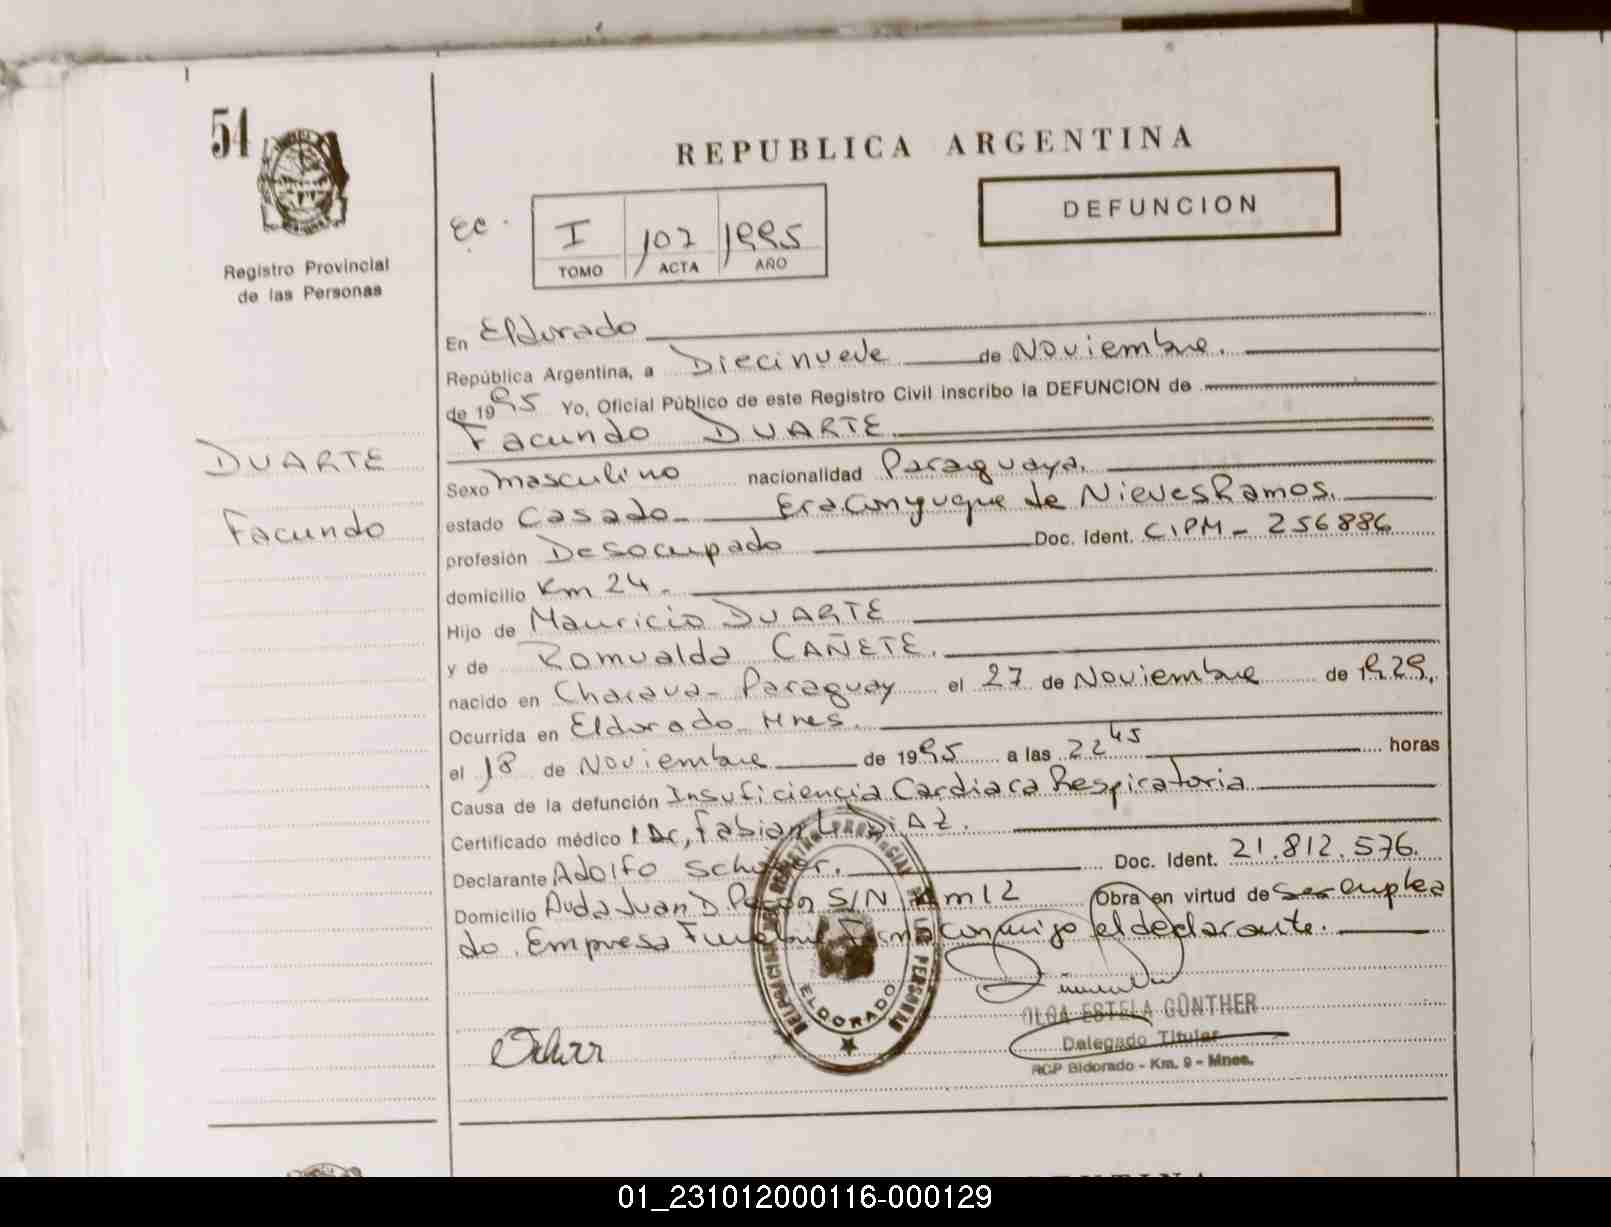 54
REPUBLICA ARGENTINA
DEFUNCION
Ec.
I 107 1995
TOMO ACTA AÑO
Registro Provincial
de las Personas
En Eldorado
República Argentina, a Diecinueve de Noviembre.
de 1995 Yo, Oficial Público de este Registro Civil inscribo la DEFUNCION de
Facundo DUARTE
DUARTE
Facundo
Sexo masculino nacionalidad Paraguaya.
estado Casado_ Era Conyugue de Nieves Ramos.
profesión Desocupado Doc. Ident. CIPM_ 256886
domicilio Km 24.
Hijo de Mauricio DUARTE
y de Romualda CAÑETE.
nacido en Paraguay el 27 de Noviembre de 1929.
Ocurrida en Eldorado Mnes.
el 18 de Noviembre de 1995 a las 22 45 horas
Causa de la defunción Insuficiencia Cardiaca Respiratoria
Certificado médico Fabian DiAZ.
Declarante Adolfo Doc. Ident. 21.812.576.
Domicilio Avda Juan D. Peron S/N Km 12 Obra en virtud de Ser emplea
do. Empresa Funebre Firma conmigo el declarante.
DELEGACION REGISTRO PROVINCIAL DE LAS PERSONAS
ELDORADO
OLGA ESTELA GÜNTHER
Delegado Titular
RCP Eldorado - Km. 9 - Mnes.
01_231012000116-000129